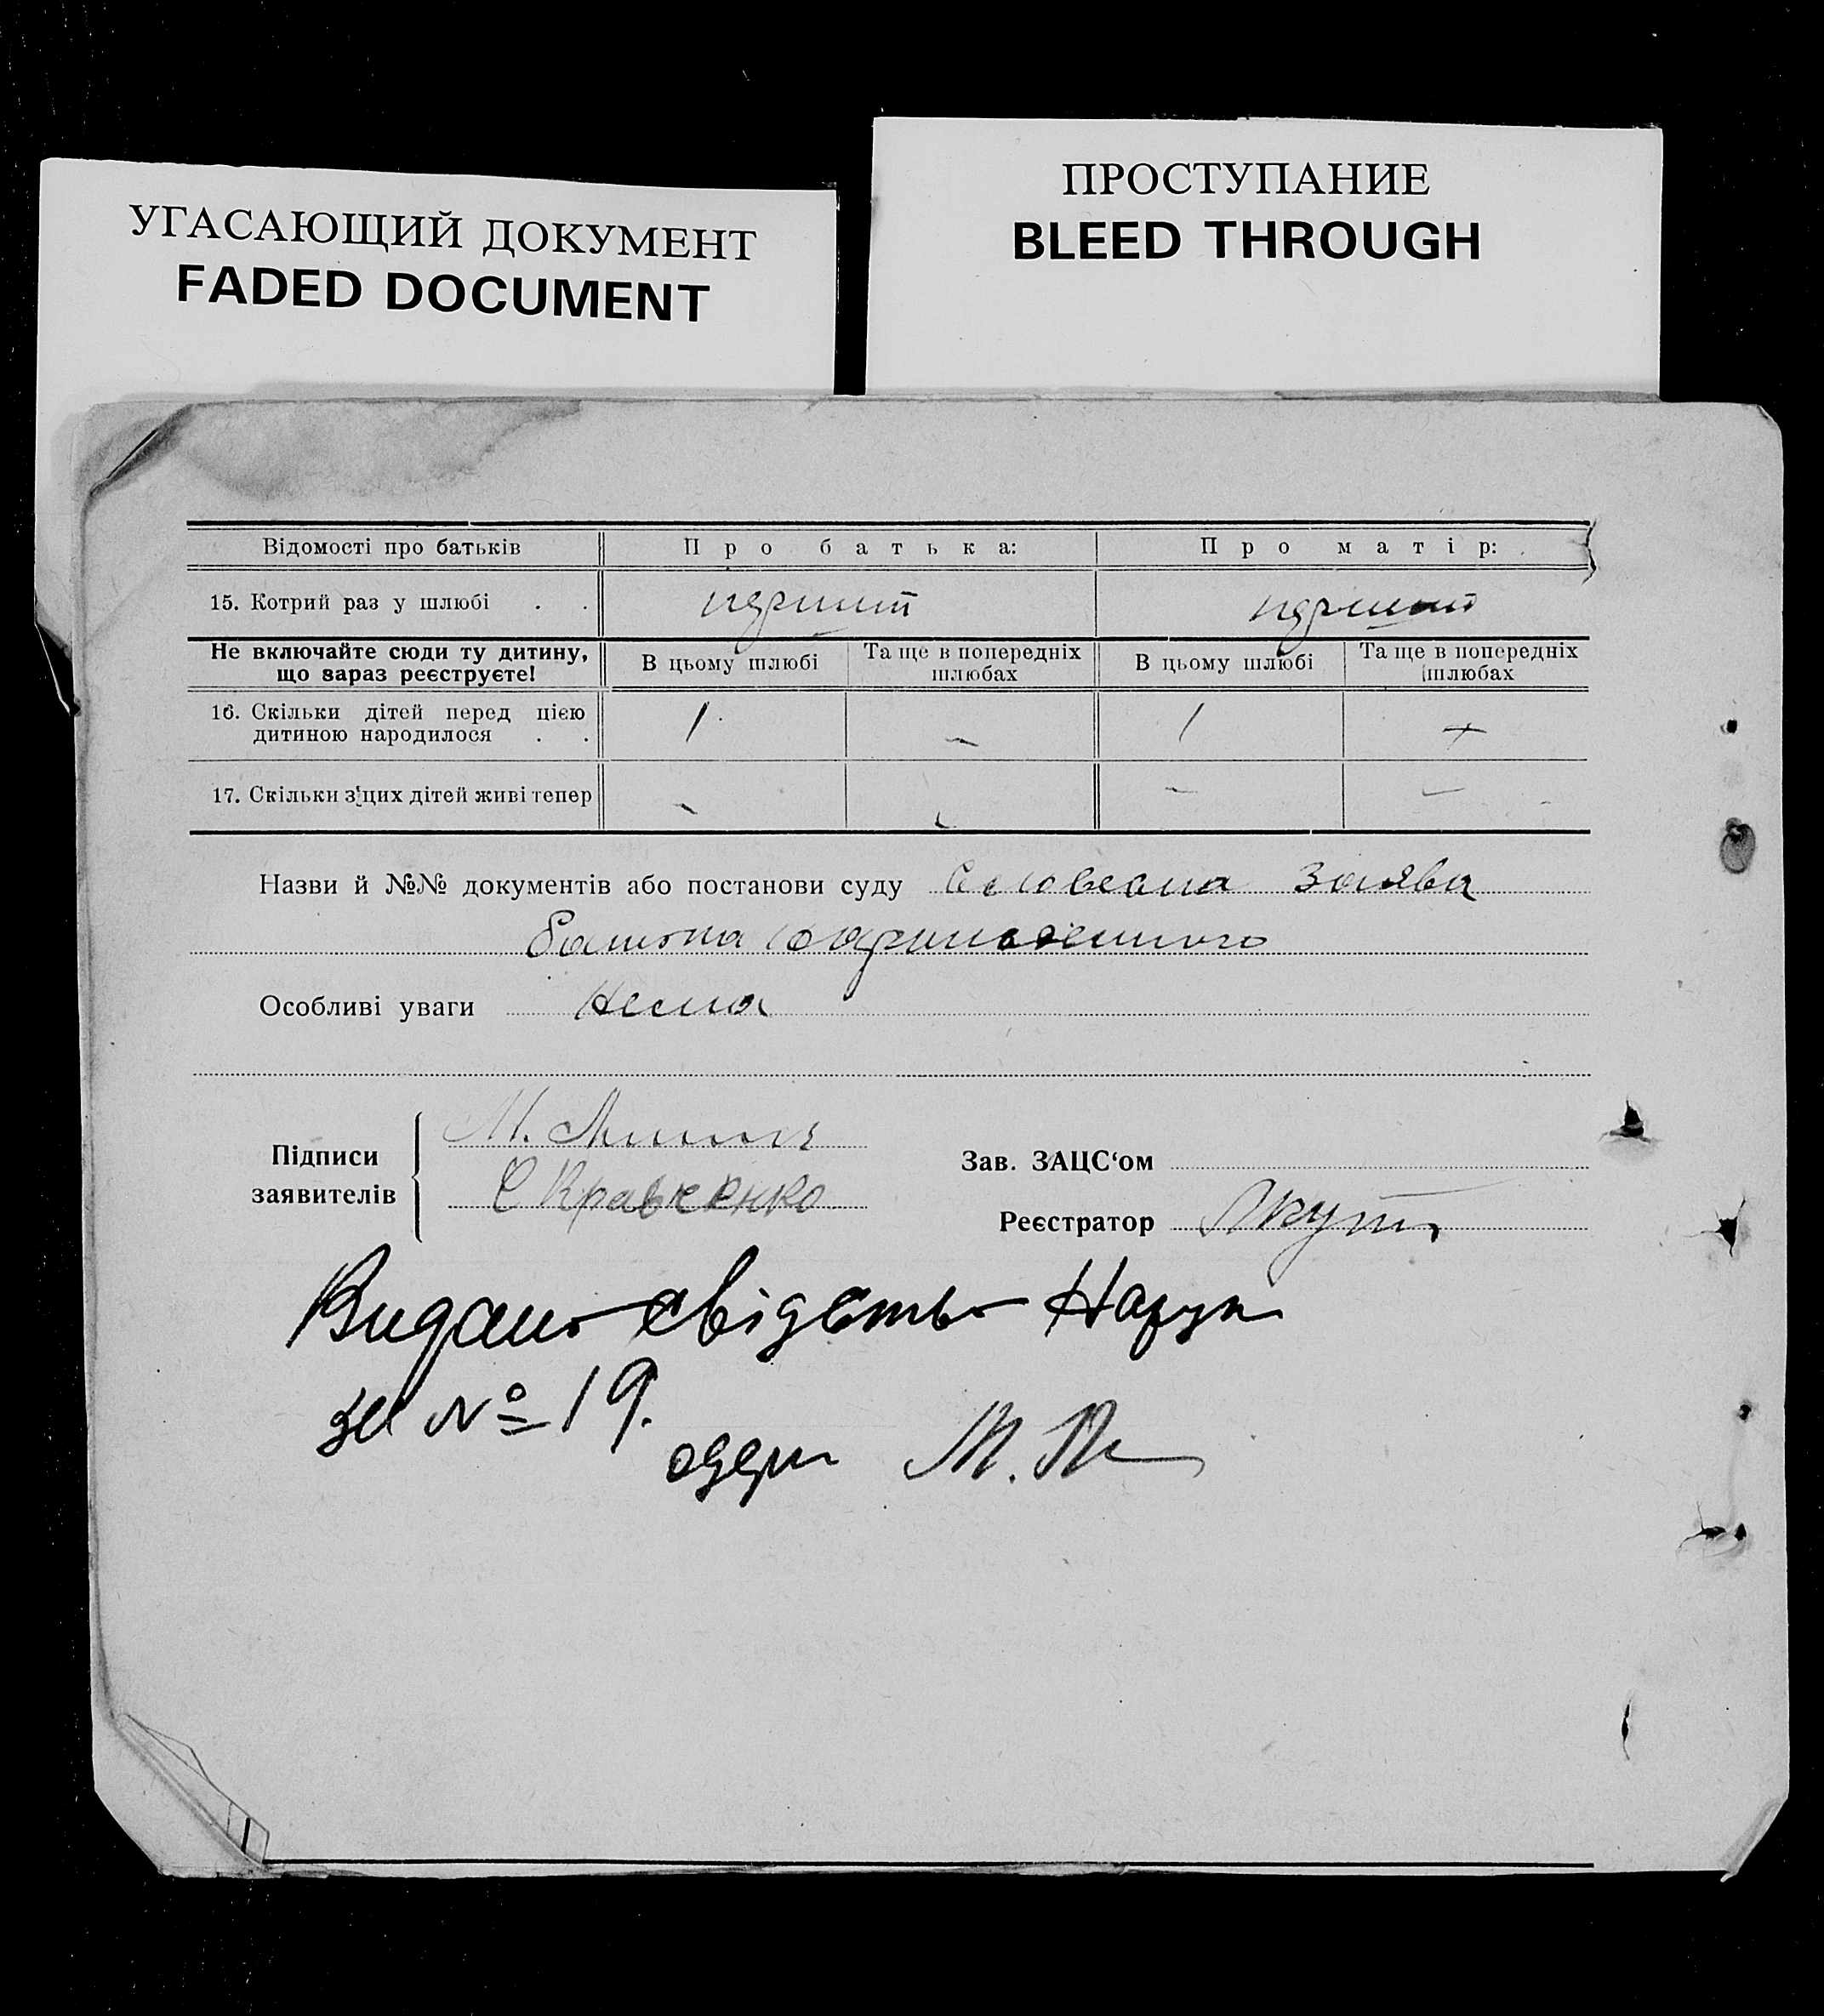 УГАСАЮЩИЙ ДОКУМЕНТ
FADED DOCUMENT
ПРОСТУПАНИЕ
BLEED THROUGH
Відомості про батьків Про батька: Про матір:
15. Котрий раз у шлюбі . . перший перший
Не включайте сюди ту дитину, що зараз реєструєте! В цьому шлюбі Та ще в попередніх шлюбах В цьому шлюбі Та ще в попередніх шлюбах
16. Скільки дітей перед цією
дитиною народилося . . 1 – 1 +
17. Скільки з цих дітей живі тепер - - - -
Назви й №№ документів або постанови суду Словесна заява
батька
Особливі уваги Нема
Підписи
заявителів
М.
С Кравченко
Зав. ЗАЦС‘ом
Реєстратор Якут
Видано свідетьо Наро
за № 19.
одер М.